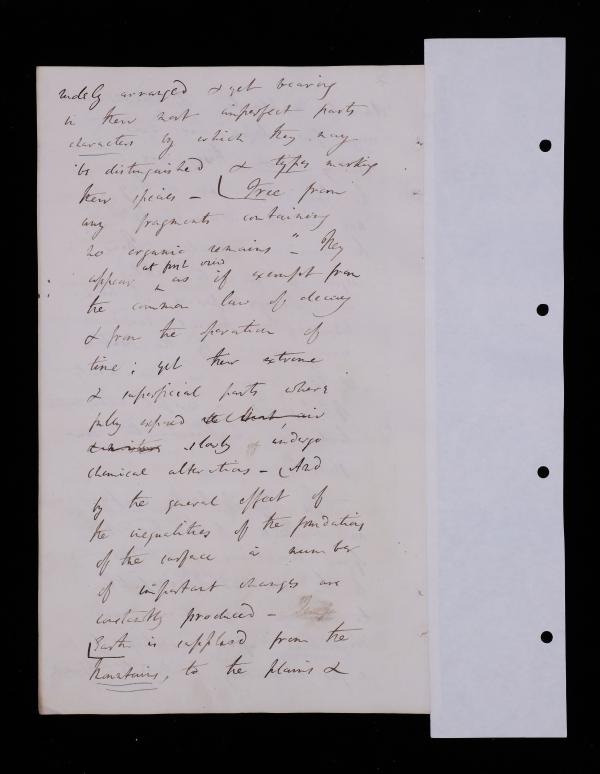 rudely arranged & yet bearing
in their most imperfect parts
characters by which they may
be distinguished & types marking
their species - Free from
any fragments containing
no "organic remains" - They
appear at first view as if exempt from
the common law of decay
& from the operation of
time; yet their extreme
& superficial parts where
fully exposed air
slowly undergo
chemical alterations - And
by the general effect of
the inequalities of the foundations
of the surface a number
of important changes are
constantly produced -
Earth is supplied from the
Mountains, to the plains &